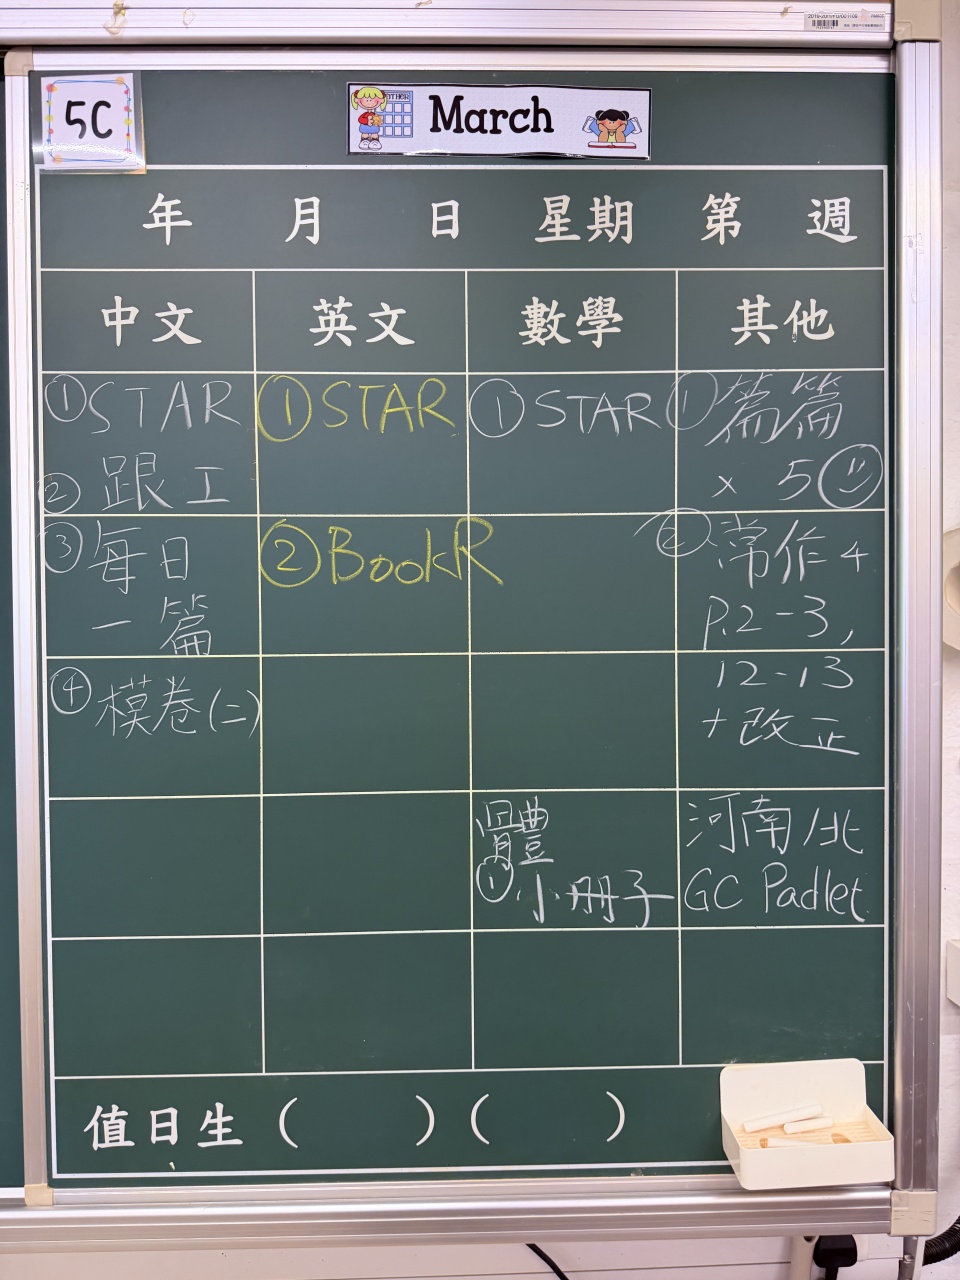 5C
March
年 月 日 星期 第 週
中文 英文 數學 其他
①STAR
②跟工
③每日
一篇
④模卷(二)
①STAR
②BookR
①STAR
體
①小冊子
①篇篇
x 5
②常作4
P.2-3,
12-13
+改正
河南/北
GC Padlet
值日生 ( ) ( )